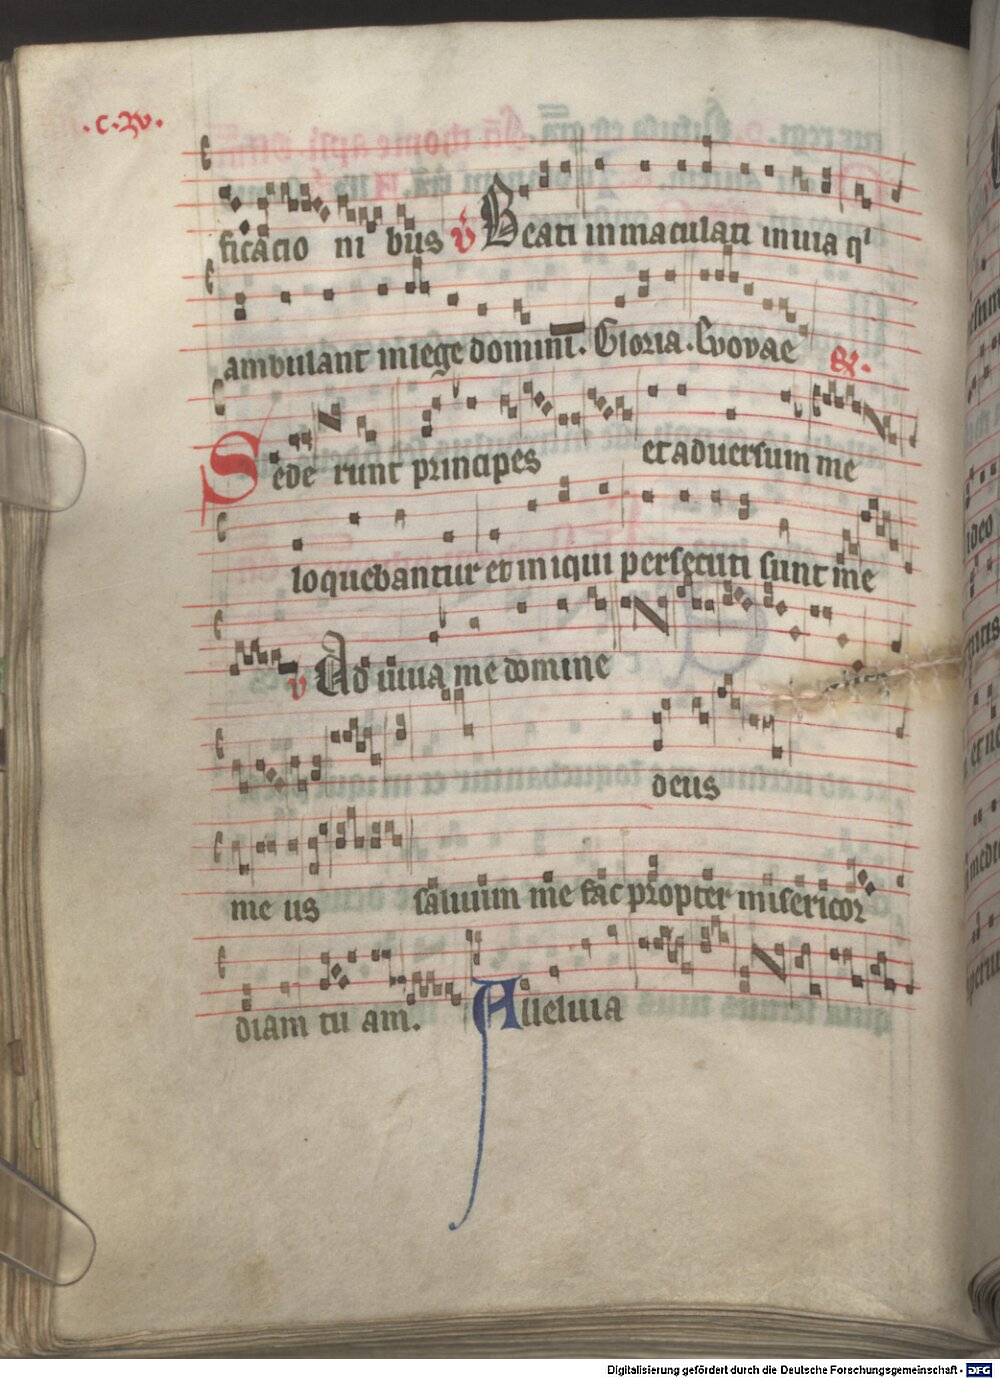 .c.xv.
ficacio ni bus v Beati inmaculati in via qi
ambulant in lege domini. Gloria. Evovae
Gr.
Sede runt principes et adversum me
loquebantur et iniqui persecuti sunt me
v Ad iuua me domine
deus
me us saluum me fac propter misericor
diam tu am. Alleluia
Digitalisierung gefördert durch die Deutsche Forschungsgemeinschaft - DFG